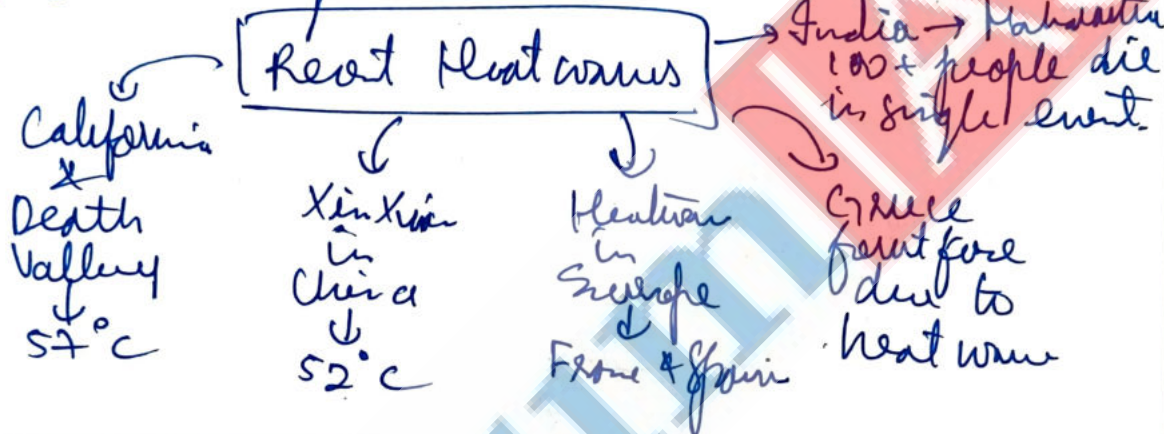 Recent Heatwaves
→ India → Maharashtra
100+ people die
in single event.
California
&
Death
Valley
↓
57°C
XinXian
in
China
↓
52°C
Heatwave
in
Europe
↓
France & Spain
Greece
forest fire
due to
heat wave